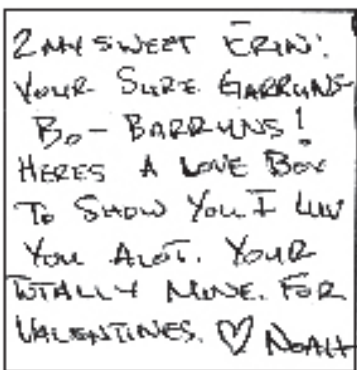 2 MY SWEET ERIN:
YOUR SURE GARRUNS-
BO-BARRUNS!
HERES A LOVE BOX
TO SHOW YOU I LUV
YOU ALOT. YOUR
TOTALLY MINE. FOR
VALENTINES. ♡ NOAH